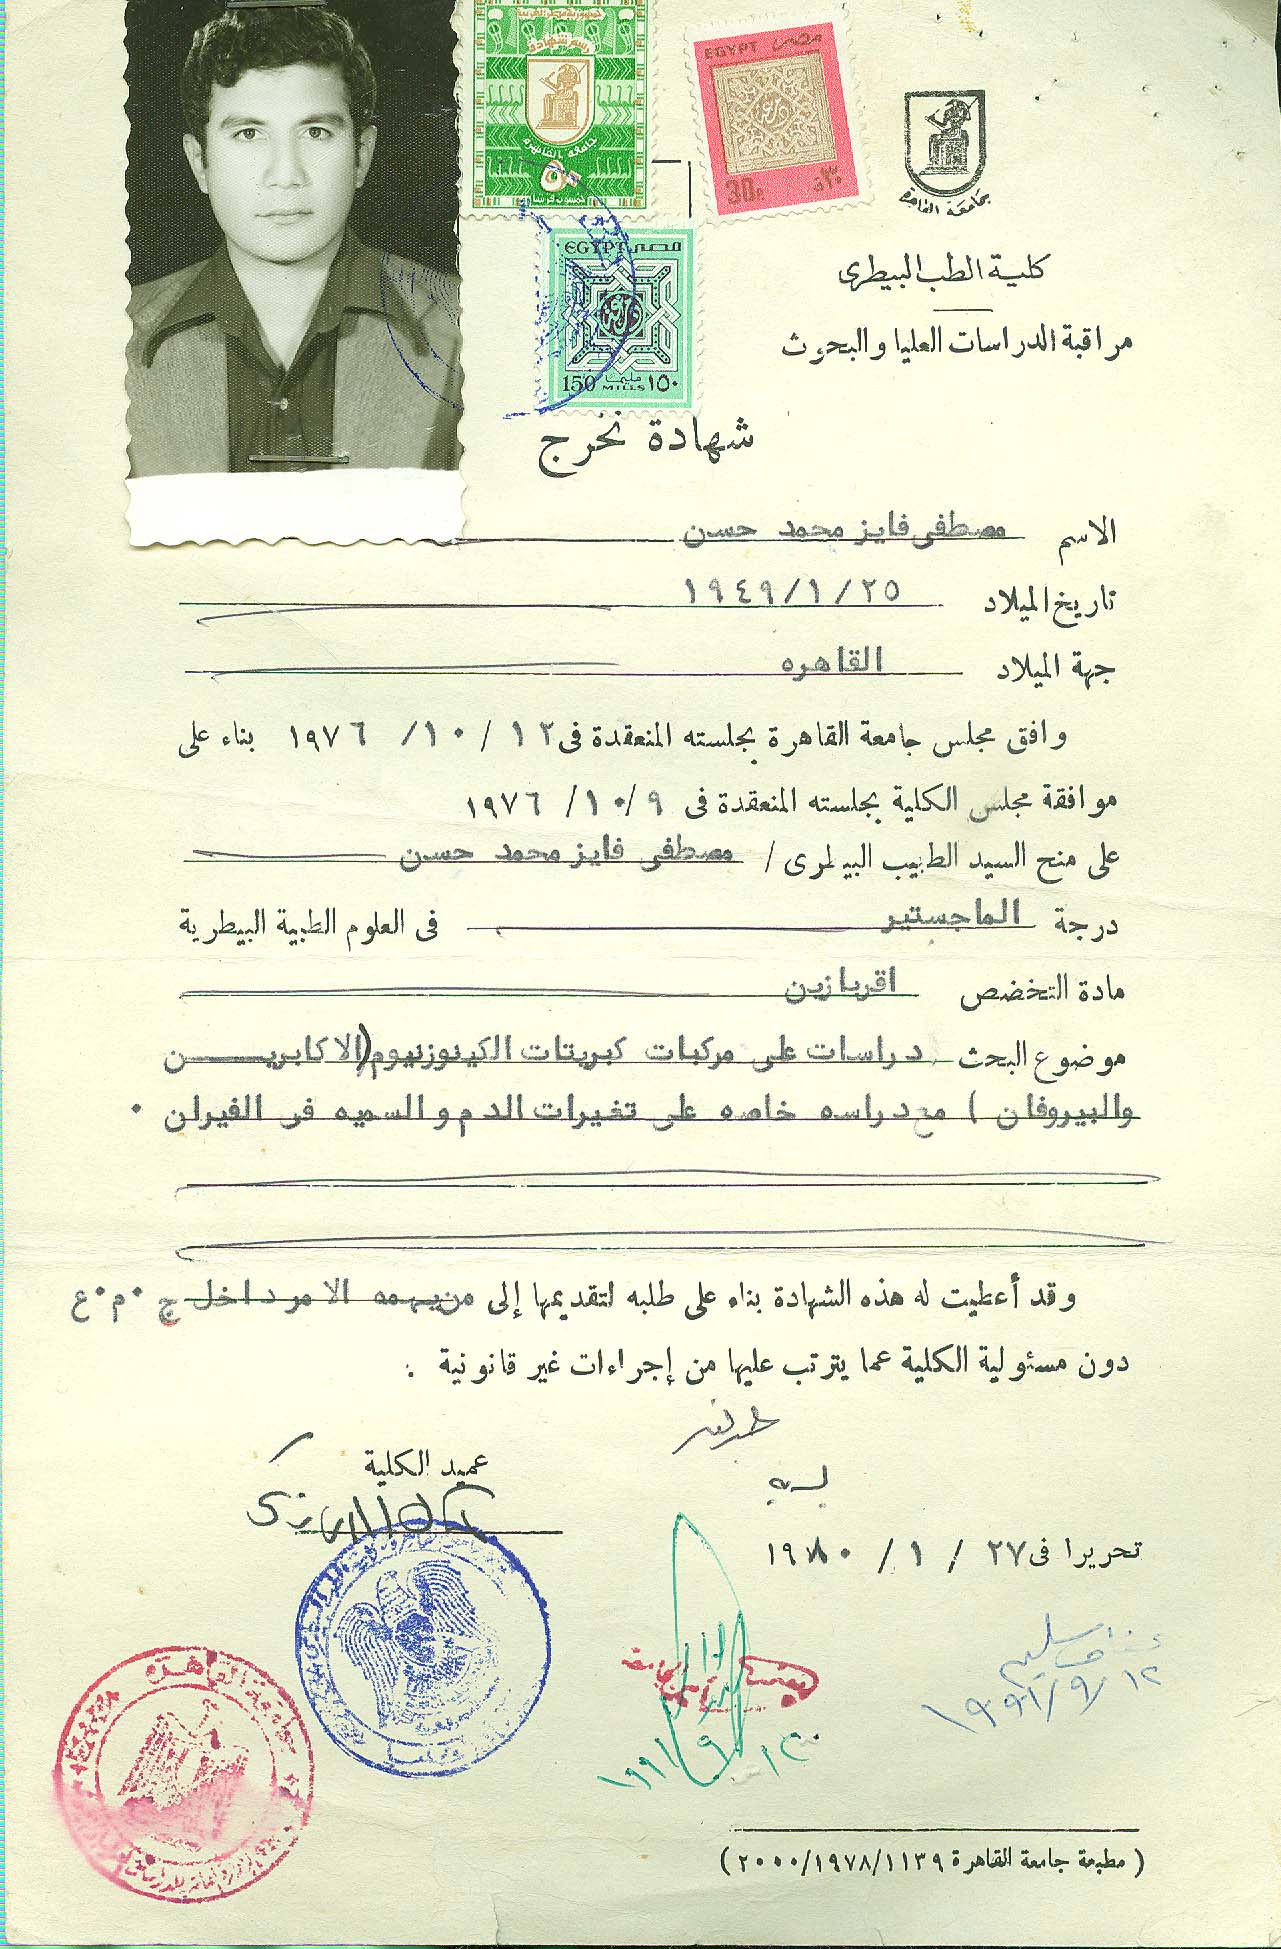 جمهورية مصر العربية
رسم شهادة
جامعة القاهرة
٥٠
خمسون قرشا
EGYPT مصر
30P. ٣٠ق
EGYPT مصر
150 MILLS مليما ١٥٠
جامعة القاهرة
كلية الطب البيطرى
مراقبة الدراسات العليا والبحوث
شهادة تخرج
الاسم مصطفى فايز محمد حسن
تاريخ الميلاد ١٩٤٩/١/٢٥
جهة الميلاد القاهره
وافق مجلس جامعة القاهرة بجلسته المنعقدة فى ١٢ / ١٠ / ١٩٧٦ بناء على
موافقة مجلس الكلية بجلسته المنعقدة فى ٩ / ١٠ / ١٩٧٦
على منح السيد الطبيب البيطرى / مصطفى فايز محمد حسن
درجة الماجستير فى العلوم الطبية البيطرية
مادة التخصص اقربازين
موضوع البحث دراسات على مركبات كبريتات الكينوزنيوم (الاكابريــن
والبيروفان ) مع دراسه خاصه على تغيرات الدم والسميه فى الفيران .
وقد أعطيت له هذه الشهادة بناء على طلبه لتقديمها إلى من يهمه الامر داخل ج ٠م٠ع
دون مسئولية الكلية عما يترتب عليها من إجراءات غير قانونية :
عميد الكلية
تحريرا فى ٢٧ / ١ / ١٩٨٠
١٩٩١/٩/١٢
١٩٩١/٩/١٢
جامعة القاهرة
( مطبعة جامعة القاهرة ١١٣٩/١٩٧٨/٢٠٠٠ )